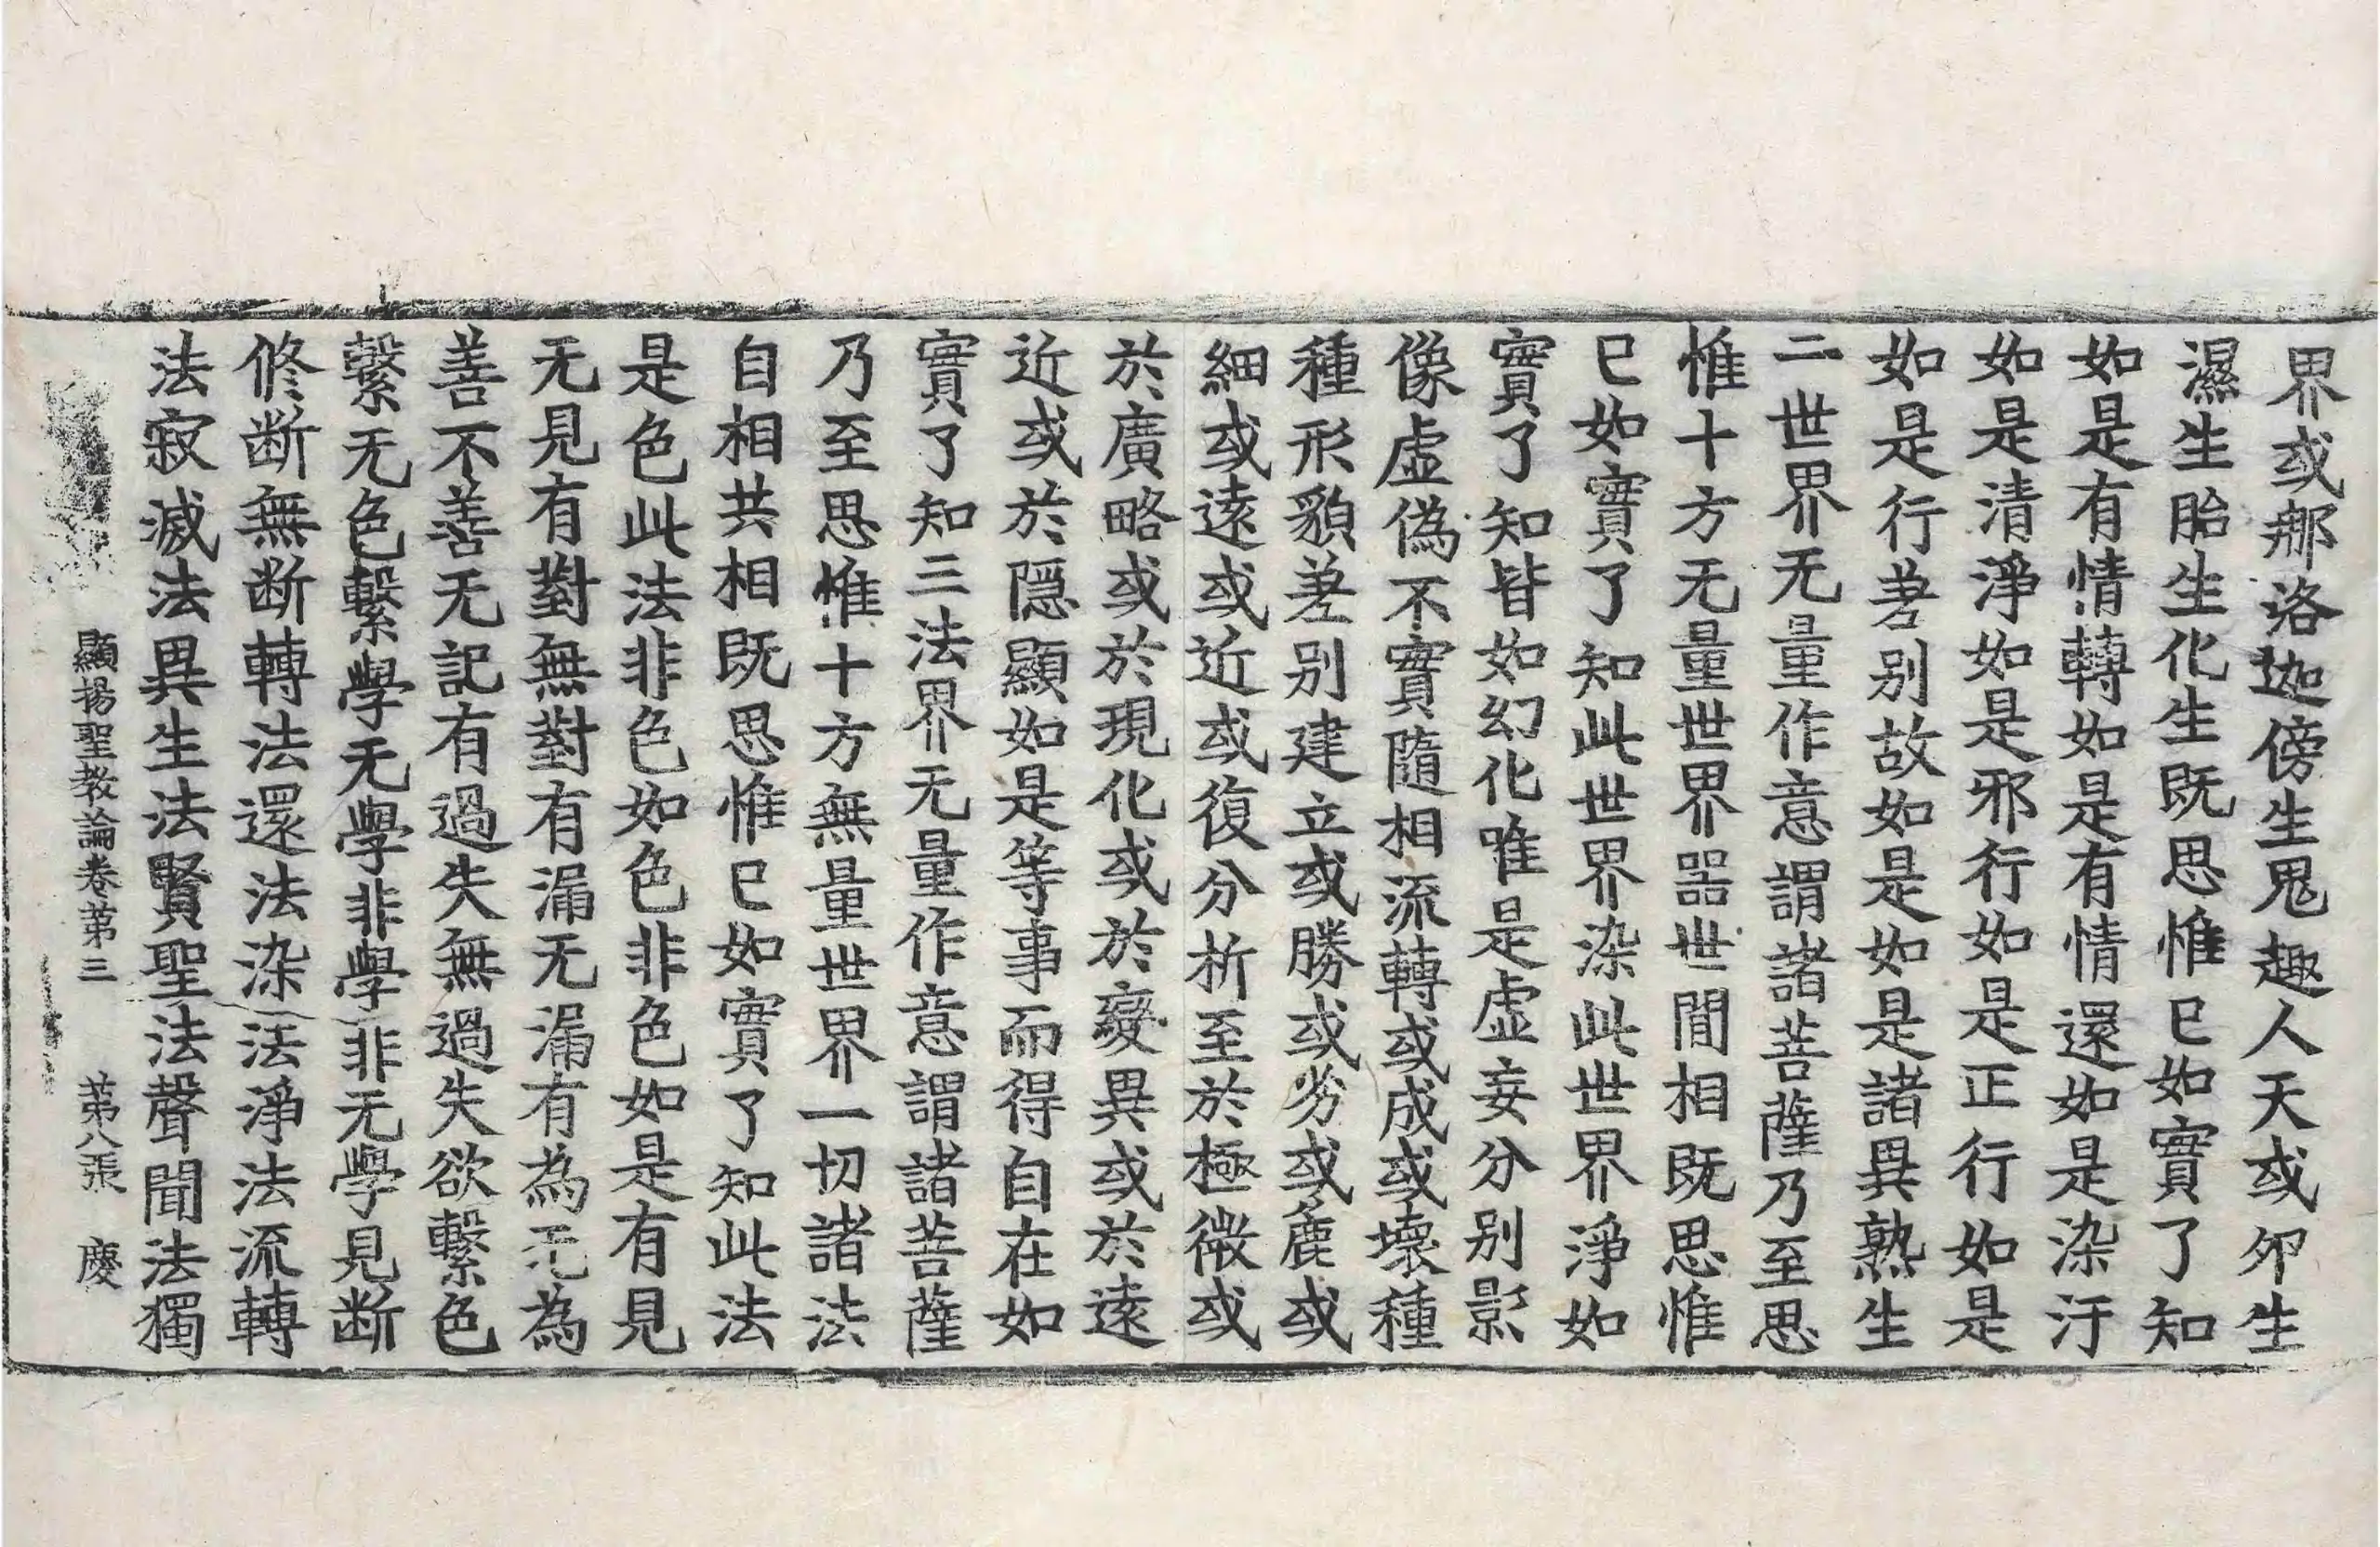 界或那洛迦傍生鬼趣人天或夘生
濕生胎生化生既思惟已如實了知
如是有情轉如是有情還如是染汙
如是清淨如是邪行如是正行如是
如是行差别故如是如是諸異熟生
二世界无量作意謂諸菩薩乃至思
惟十方无量世界器世間相既思惟
已如實了知此世界染此世界淨如
實了知皆如幻化唯是虛妄分别影
像虛偽不實隨相流轉或成或壞種
種形貌差别建立或勝或劣或麁或
細或遠或近或復分析至於極微或
於廣略或於現化或於變異或於遠
近或於隱顯如是等事而得自在如
實了知三法界无量作意謂諸菩薩
乃至思惟十方無量世界一切諸法
自相共相既思惟已如實了知此法
是色此法非色如色非色如是有見
无見有對無對有漏无漏有為无為
善不善无記有過失無過失欲繫色
繫无色繫學无學非學非无學見断
修断無断轉法還法染法淨法流轉
法寂滅法異生法賢聖法聲聞法獨
顯揚聖教論卷第三 第八張 慶